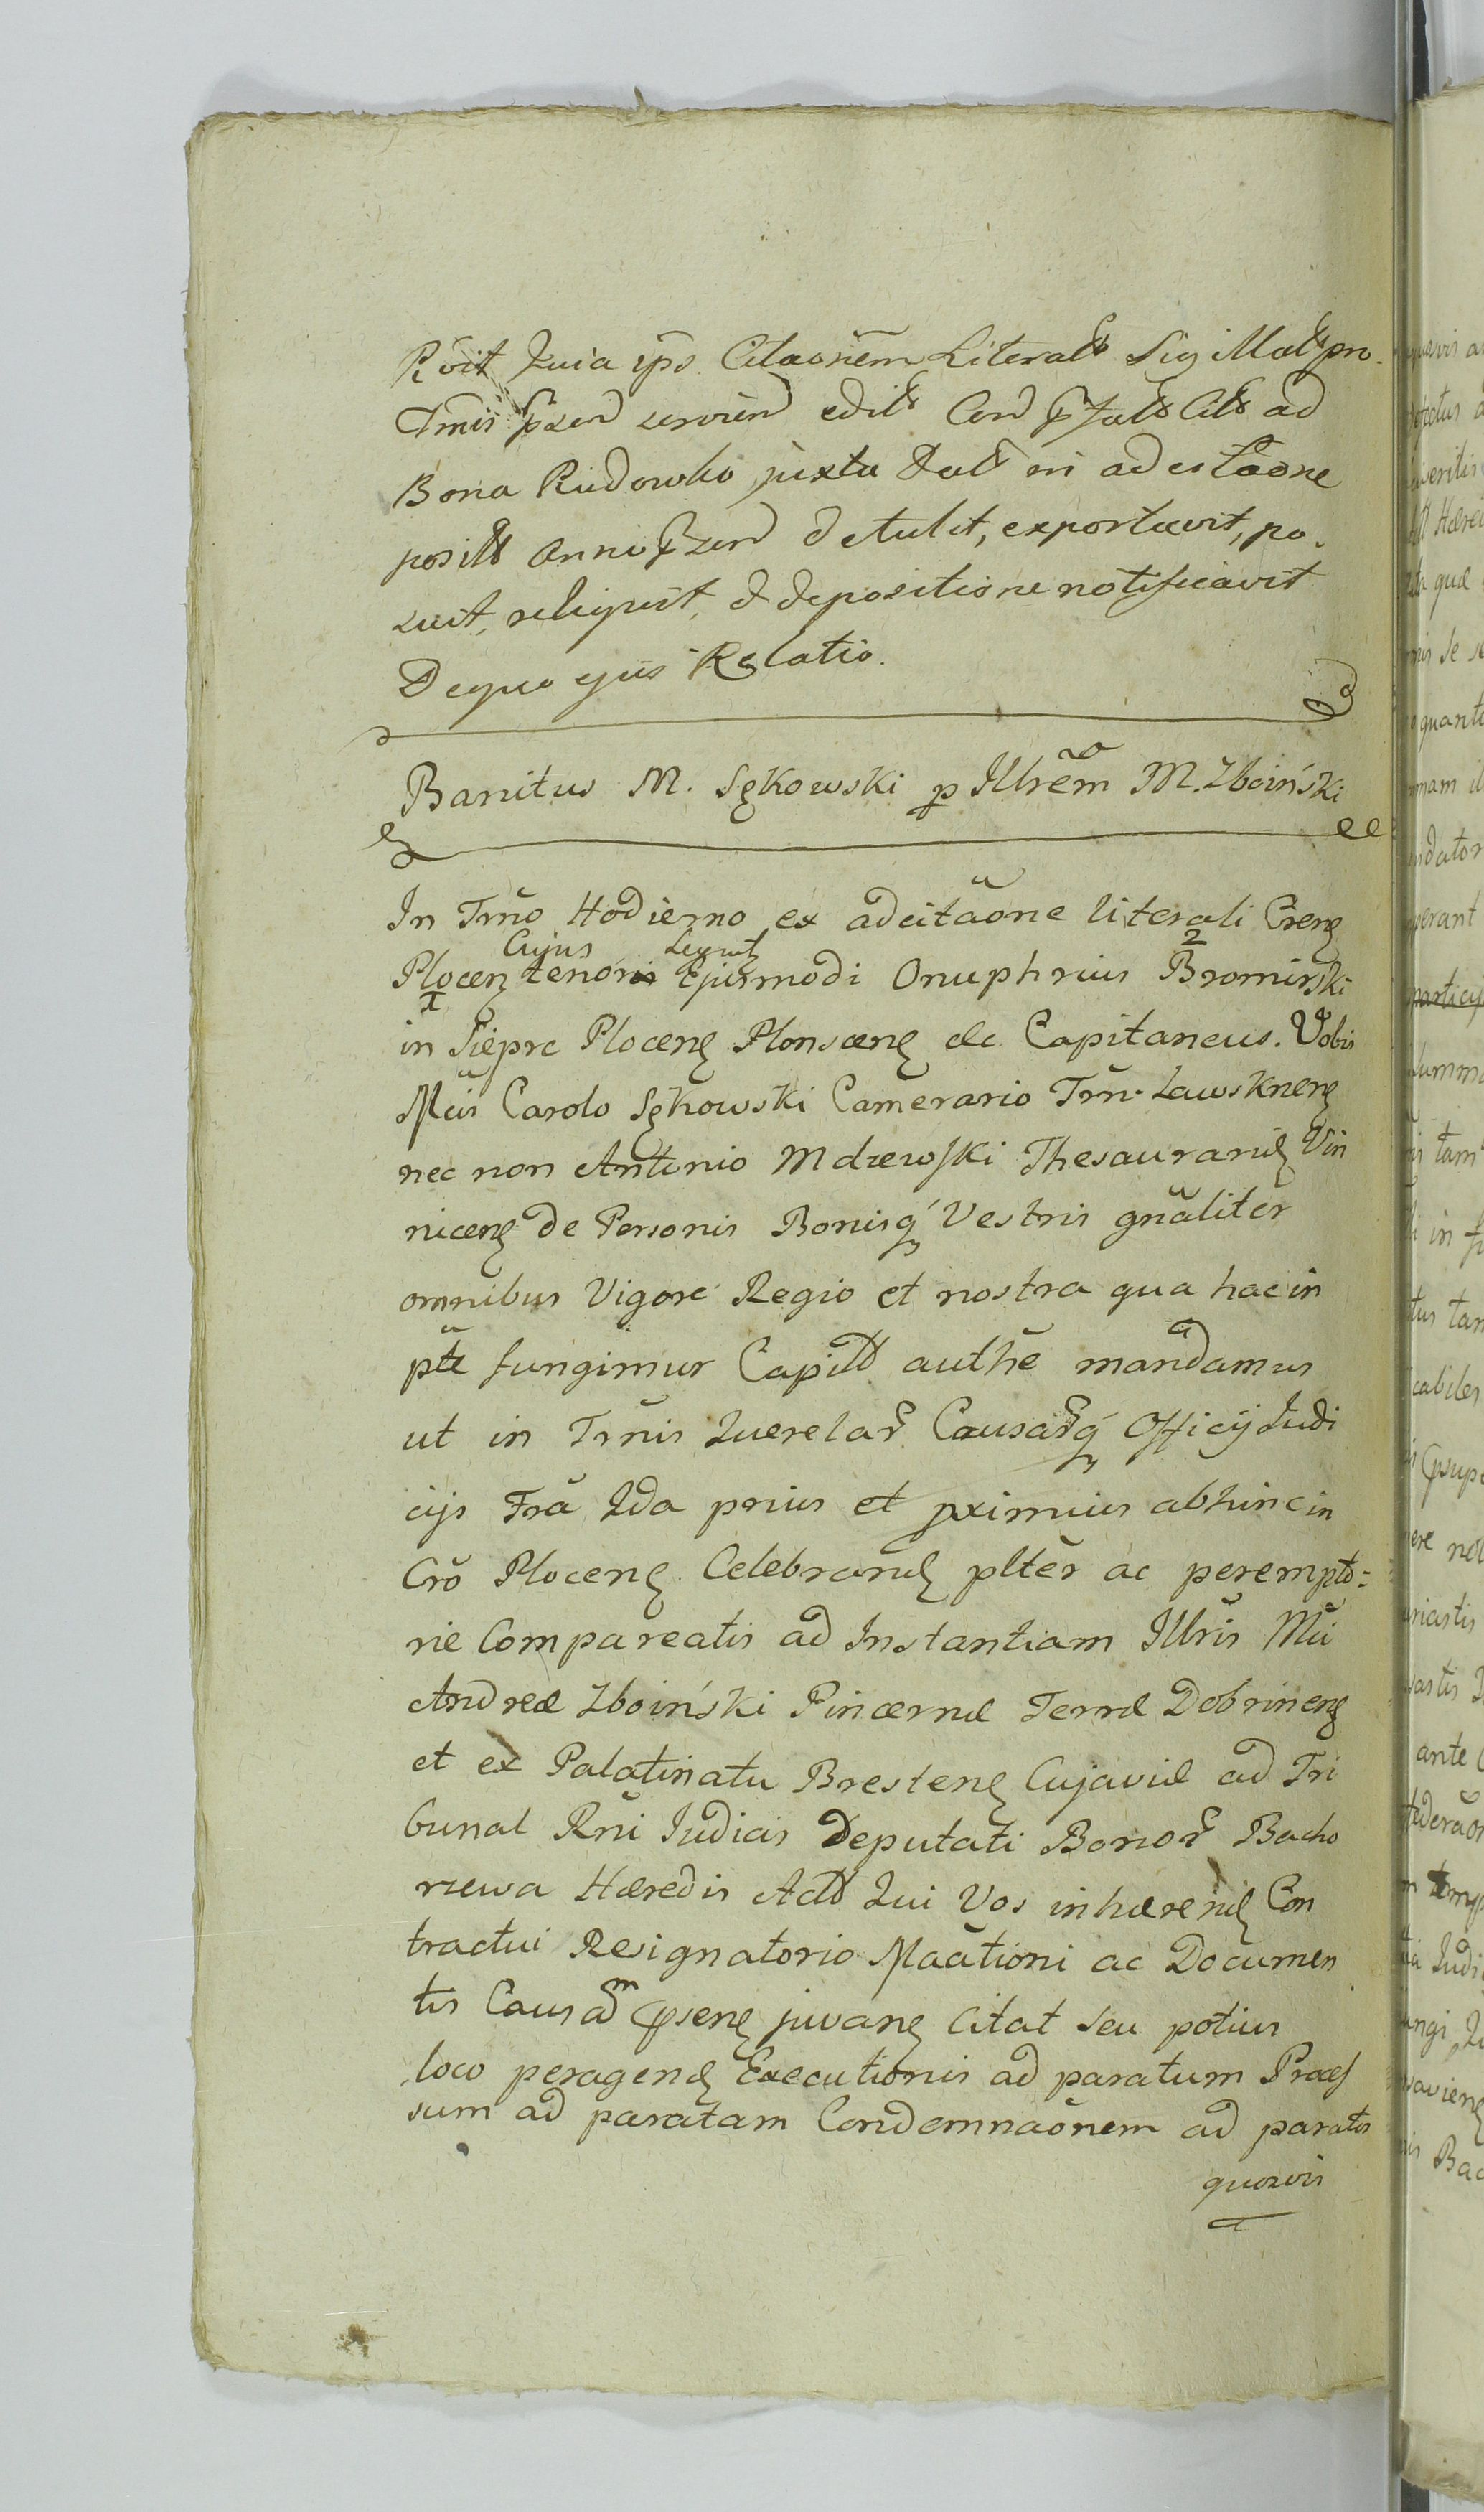 Rvit Quia ips Citaonem Literal Sigillat pro
Tmis pzen servien edit Con Ad ad
Bona Rudowko juxta Dat in adcitaone
posit anni pzen detulit, exportavit, po
suit, reliquit, d depositione notificavit
Dequo ejus Relatio.
Banitus M. Sękowski p Illrem M. Zboiński
In Trno Hodierno ex adcitaone literali Cren
Cujus Sequit
Plocen tenoris Ejusmodi Onuphrius Bromirski
in Sieprc Plocen Plonscen etc Capitaneus. Vobis
Mcis Carolo Sękowski Camerario Trn. Zawsknen
nec non Antonio Mdzewski Thesaurario Vin
nicen de Personis Bonisq Vestris gnaliter
omnibus Vigore Regio et nostra qua hac in
pte fungimur Capit authe mandamus
ut in Trnis Querelar Causarq Officij Judi
cijs Fra 2da prius et proximius abhinc in
Cro Plocen Celebrand plter ac perempto=
rie Compareatis ad Instantiam Illris Mci
Andreæ Zboiński Pincernæ Terræ Dobrinen
et ex Palatinatu Bresten Cujaviæ ad Tri
bunal Rni Judicis Deputati Bonor Bacho
rzewa Hæredis Act Qui Vos inhærend Con
tractui Resignatorio Maationi ac Documen
tis Causam psen juvan Citat seu potius
loco peragend Executionis ad paratum Proces
sum ad paratam Condemnaonem ad paratos
quosvis